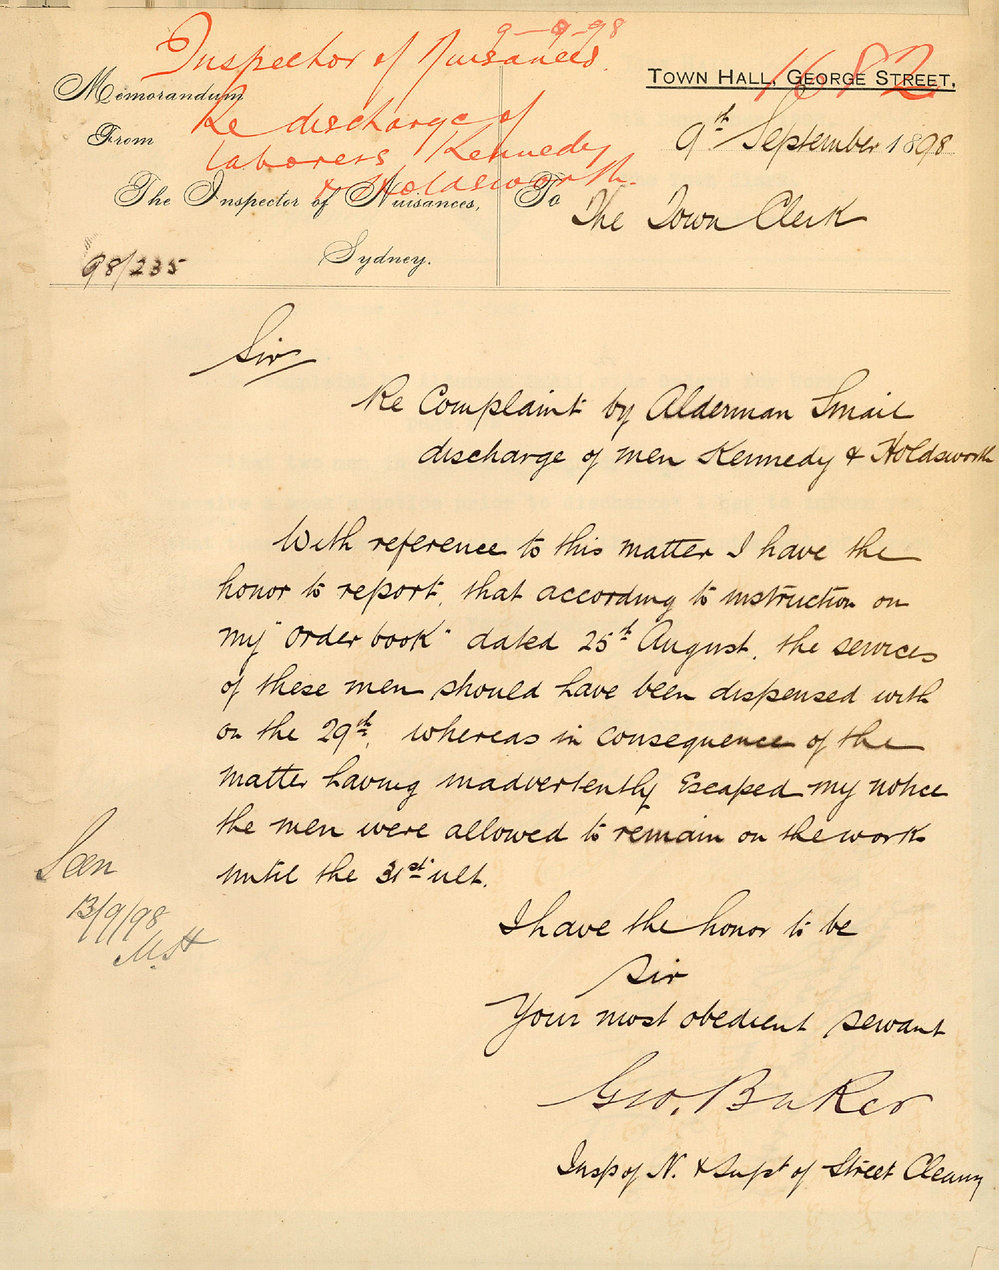 9-9-98
Inspector of Nuisances.
1682
Re discharge of
laborers Kennedy
& Holdsworth.
Memorandum
From
The Inspector of Nuisances,
Sydney.
98/235
TOWN HALL, GEORGE STREET,
9th September 1898
To The Town Clerk
Sir
Re Complaint by Alderman Smail
discharge of men Kennedy & Holdsworth
With reference to this matter I have the
honor to report, that according to instruction on
my "order book" dated 25th August, the services
of these men should have been dispensed with
on the 29th, whereas in consequence of the
matter having inadvertently Escaped my notice
the men were allowed to remain on the work
until the 31st ult.
Seen
13/9/98
I have the honor to be
Sir
Your most obedient servant
Geo. Baker
Insp of N. & Supt of Street Cleaning